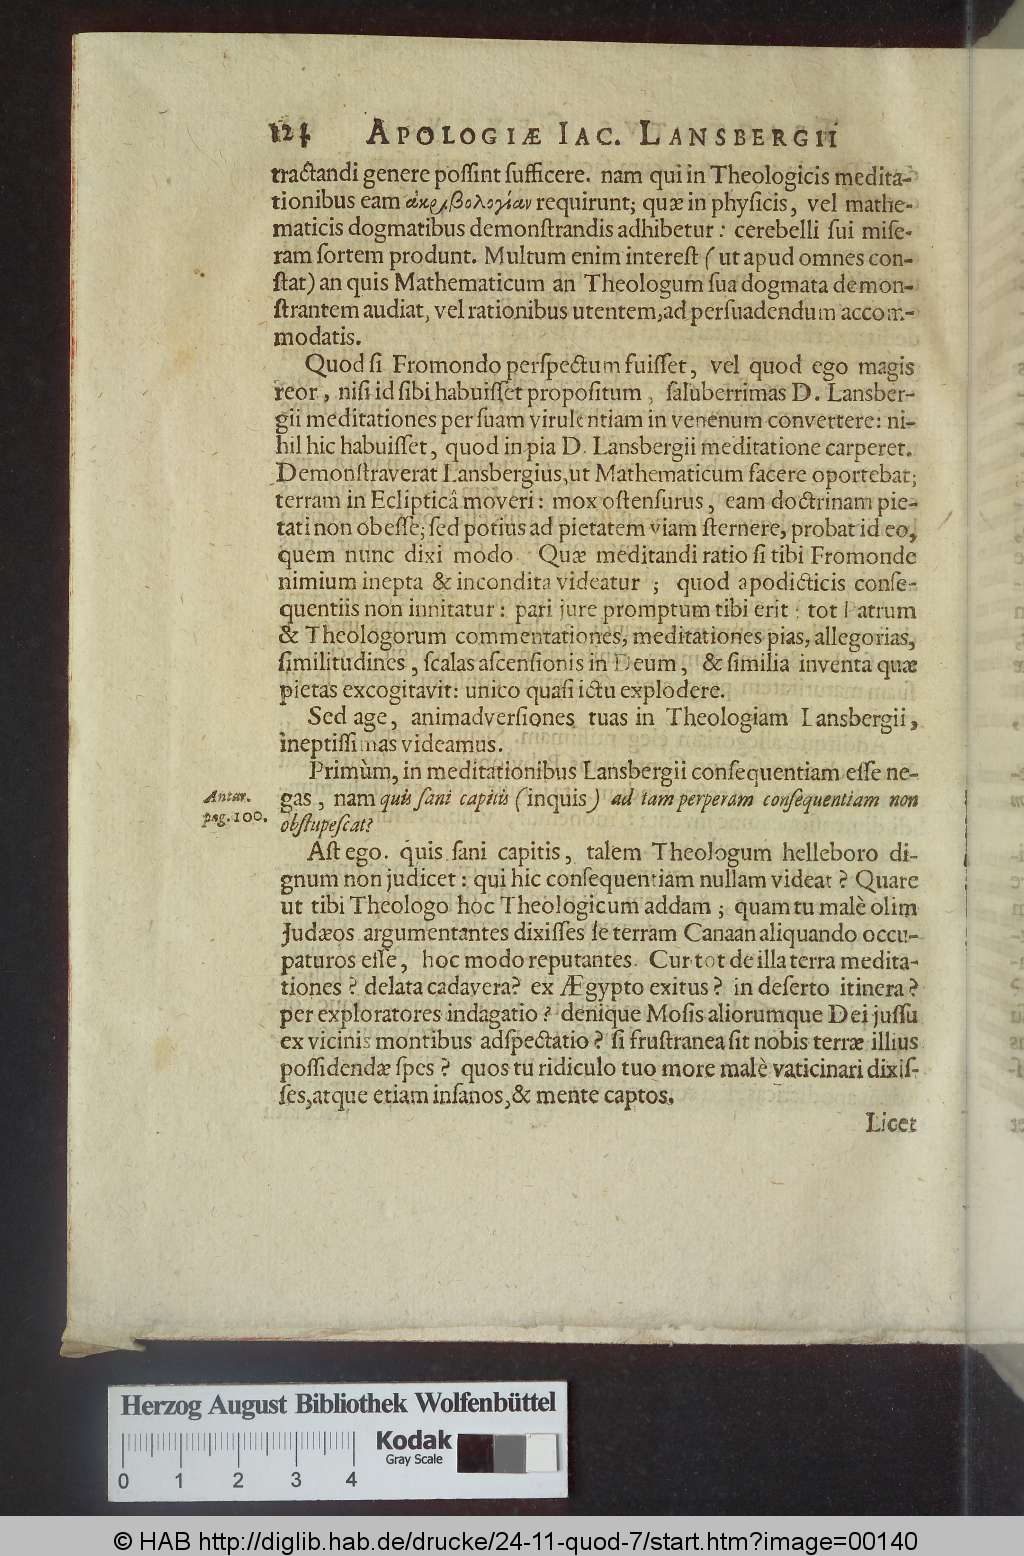 APOLOGIÆ IAC. LANSBERGII
tractandi genere poſſint ſufficere. nam qui in Theologicis medita-
tionibus eam ἀκριβολογίαν requirunt; quæ in phyſicis, vel mathe-
maticis dogmatibus demonſtrandis adhibetur: cerebelli ſui miſe-
ram ſortem produnt. Multum enim intereſt (ut apud omnes con-
ſtat) an quis Mathematicum an Theologum ſua dogmata demon-
ſtrantem audiat, vel rationibus utentem, ad perſuadendum accom-
modatis.
Quod ſi Fromondo perſpectum fuiſſet, vel quod ego magis
reor, niſi id ſibi habuiſſet propoſitum, ſaluberrimas D. Lansber-
gii meditationes per ſuam virulentiam in venenum convertere: ni-
hil hic habuiſſet, quod in pia D. Lansbergii meditatione carperet.
Demonſtraverat Lansbergius, ut Mathematicum facere oportebat;
terram in Eclipticâ moveri: mox oſtenſurus, eam doctrinam pie-
tati non obeſſe; ſed potius ad pietatem viam ſternere, probat id eo,
quem nunc dixi modo. Quæ meditandi ratio ſi tibi Fromonde
nimium inepta & incondita videatur; quod apodicticis conſe-
quentiis non innitatur: pari jure promptum tibi erit: tot Patrum
& Theologorum commentationes, meditationes pias, allegorias,
ſimilitudines, ſcalas aſcenſionis in Deum, & ſimilia inventa quæ
pietas excogitavit: unico quaſi ictu explodere.
Sed age, animadverſiones tuas in Theologiam Lansbergii,
ineptiſſimas videamus.
Primùm, in meditationibus Lansbergii conſequentiam eſſe ne-
Antar.
pag. 100.
gas, nam quis ſani capitis (inquis) ad tam perperam conſequentiam non
obſtupeſcat?
Aſt ego. quis ſani capitis, talem Theologum helleboro di-
gnum non judicet: qui hic conſequentiam nullam videat? Quare
ut tibi Theologo hoc Theologicum addam; quam tu malè olim
Judæos argumentantes dixiſſes ſe terram Canaan aliquando occu-
paturos eſſe, hoc modo reputantes. Cur tot de illa terra medita-
tiones? delata cadavera? ex Ægypto exitus? in deſerto itinera?
per exploratores indagatio? denique Moſis aliorumque Dei juſſu
ex vicinis montibus adſpectatio? ſi fruſtranea ſit nobis terræ illius
poſſidendæ ſpes? quos tu ridiculo tuo more malè vaticinari dixiſ-
ſes, atque etiam inſanos, & mente captos.
Licet
Herzog August Bibliothek Wolfenbüttel
Kodak
Gray Scale
0 1 2 3 4
© HAB http://diglib.hab.de/drucke/24-11-quod-7/start.htm?image=00140